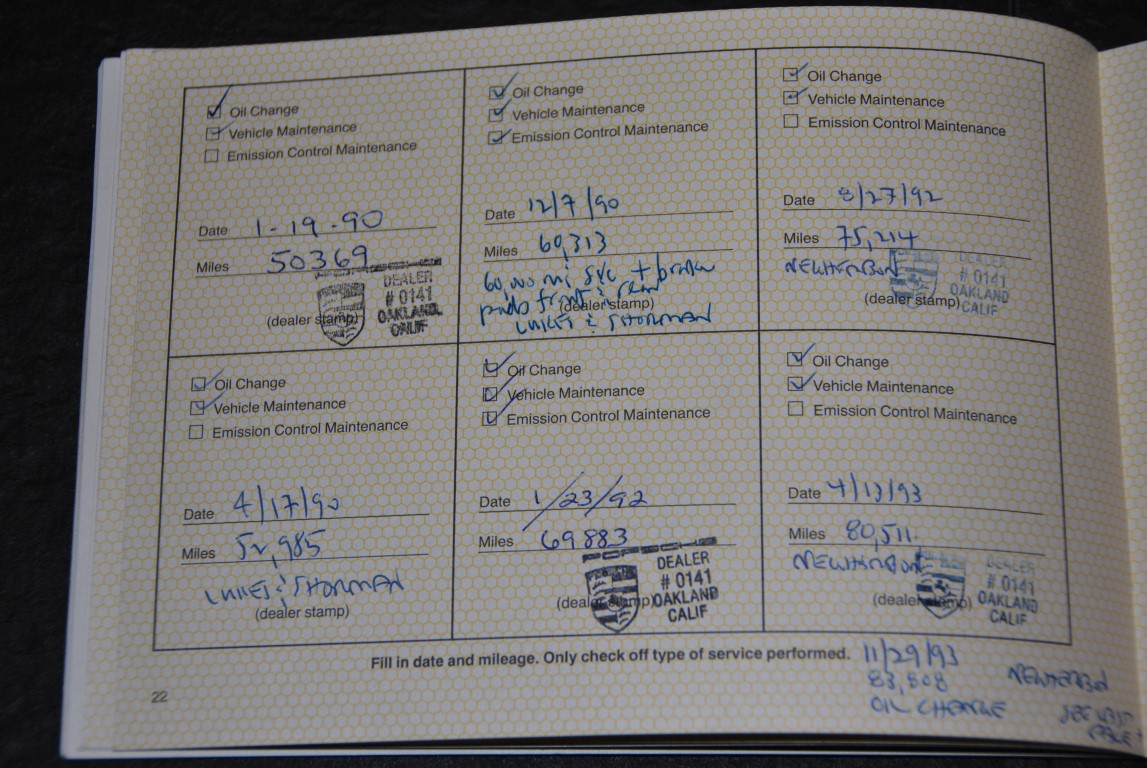 Oil Change
Vehicle Maintenance
Emission Control Maintenance
Date 1-19-90
Miles 50369
(dealer stamp)
DEALER
# 0141
OAKLAND,
CALIF
Oil Change
Vehicle Maintenance
Emission Control Maintenance
Date 12/7/90
Miles 60,313
60,000 mi svc + brake
pads front & rear
(dealer stamp)
Oil Change
Vehicle Maintenance
Emission Control Maintenance
Date 8/27/92
Miles 75,214
(dealer stamp)
DEALER
# 0141
OAKLAND
CALIF
Oil Change
Vehicle Maintenance
Emission Control Maintenance
Date 4/17/90
Miles 52,985
(dealer stamp)
Oil Change
Vehicle Maintenance
Emission Control Maintenance
Date 1/23/92
Miles 69883
(dealer stamp)
DEALER
# 0141
OAKLAND
CALIF
Oil Change
Vehicle Maintenance
Emission Control Maintenance
Date 4/13/93
Miles 80,511
(dealer stamp)
DEALER
# 0141
OAKLAND
CALIF
Fill in date and mileage. Only check off type of service performed.
11/29/93
83,808
OIL CHANGE
22